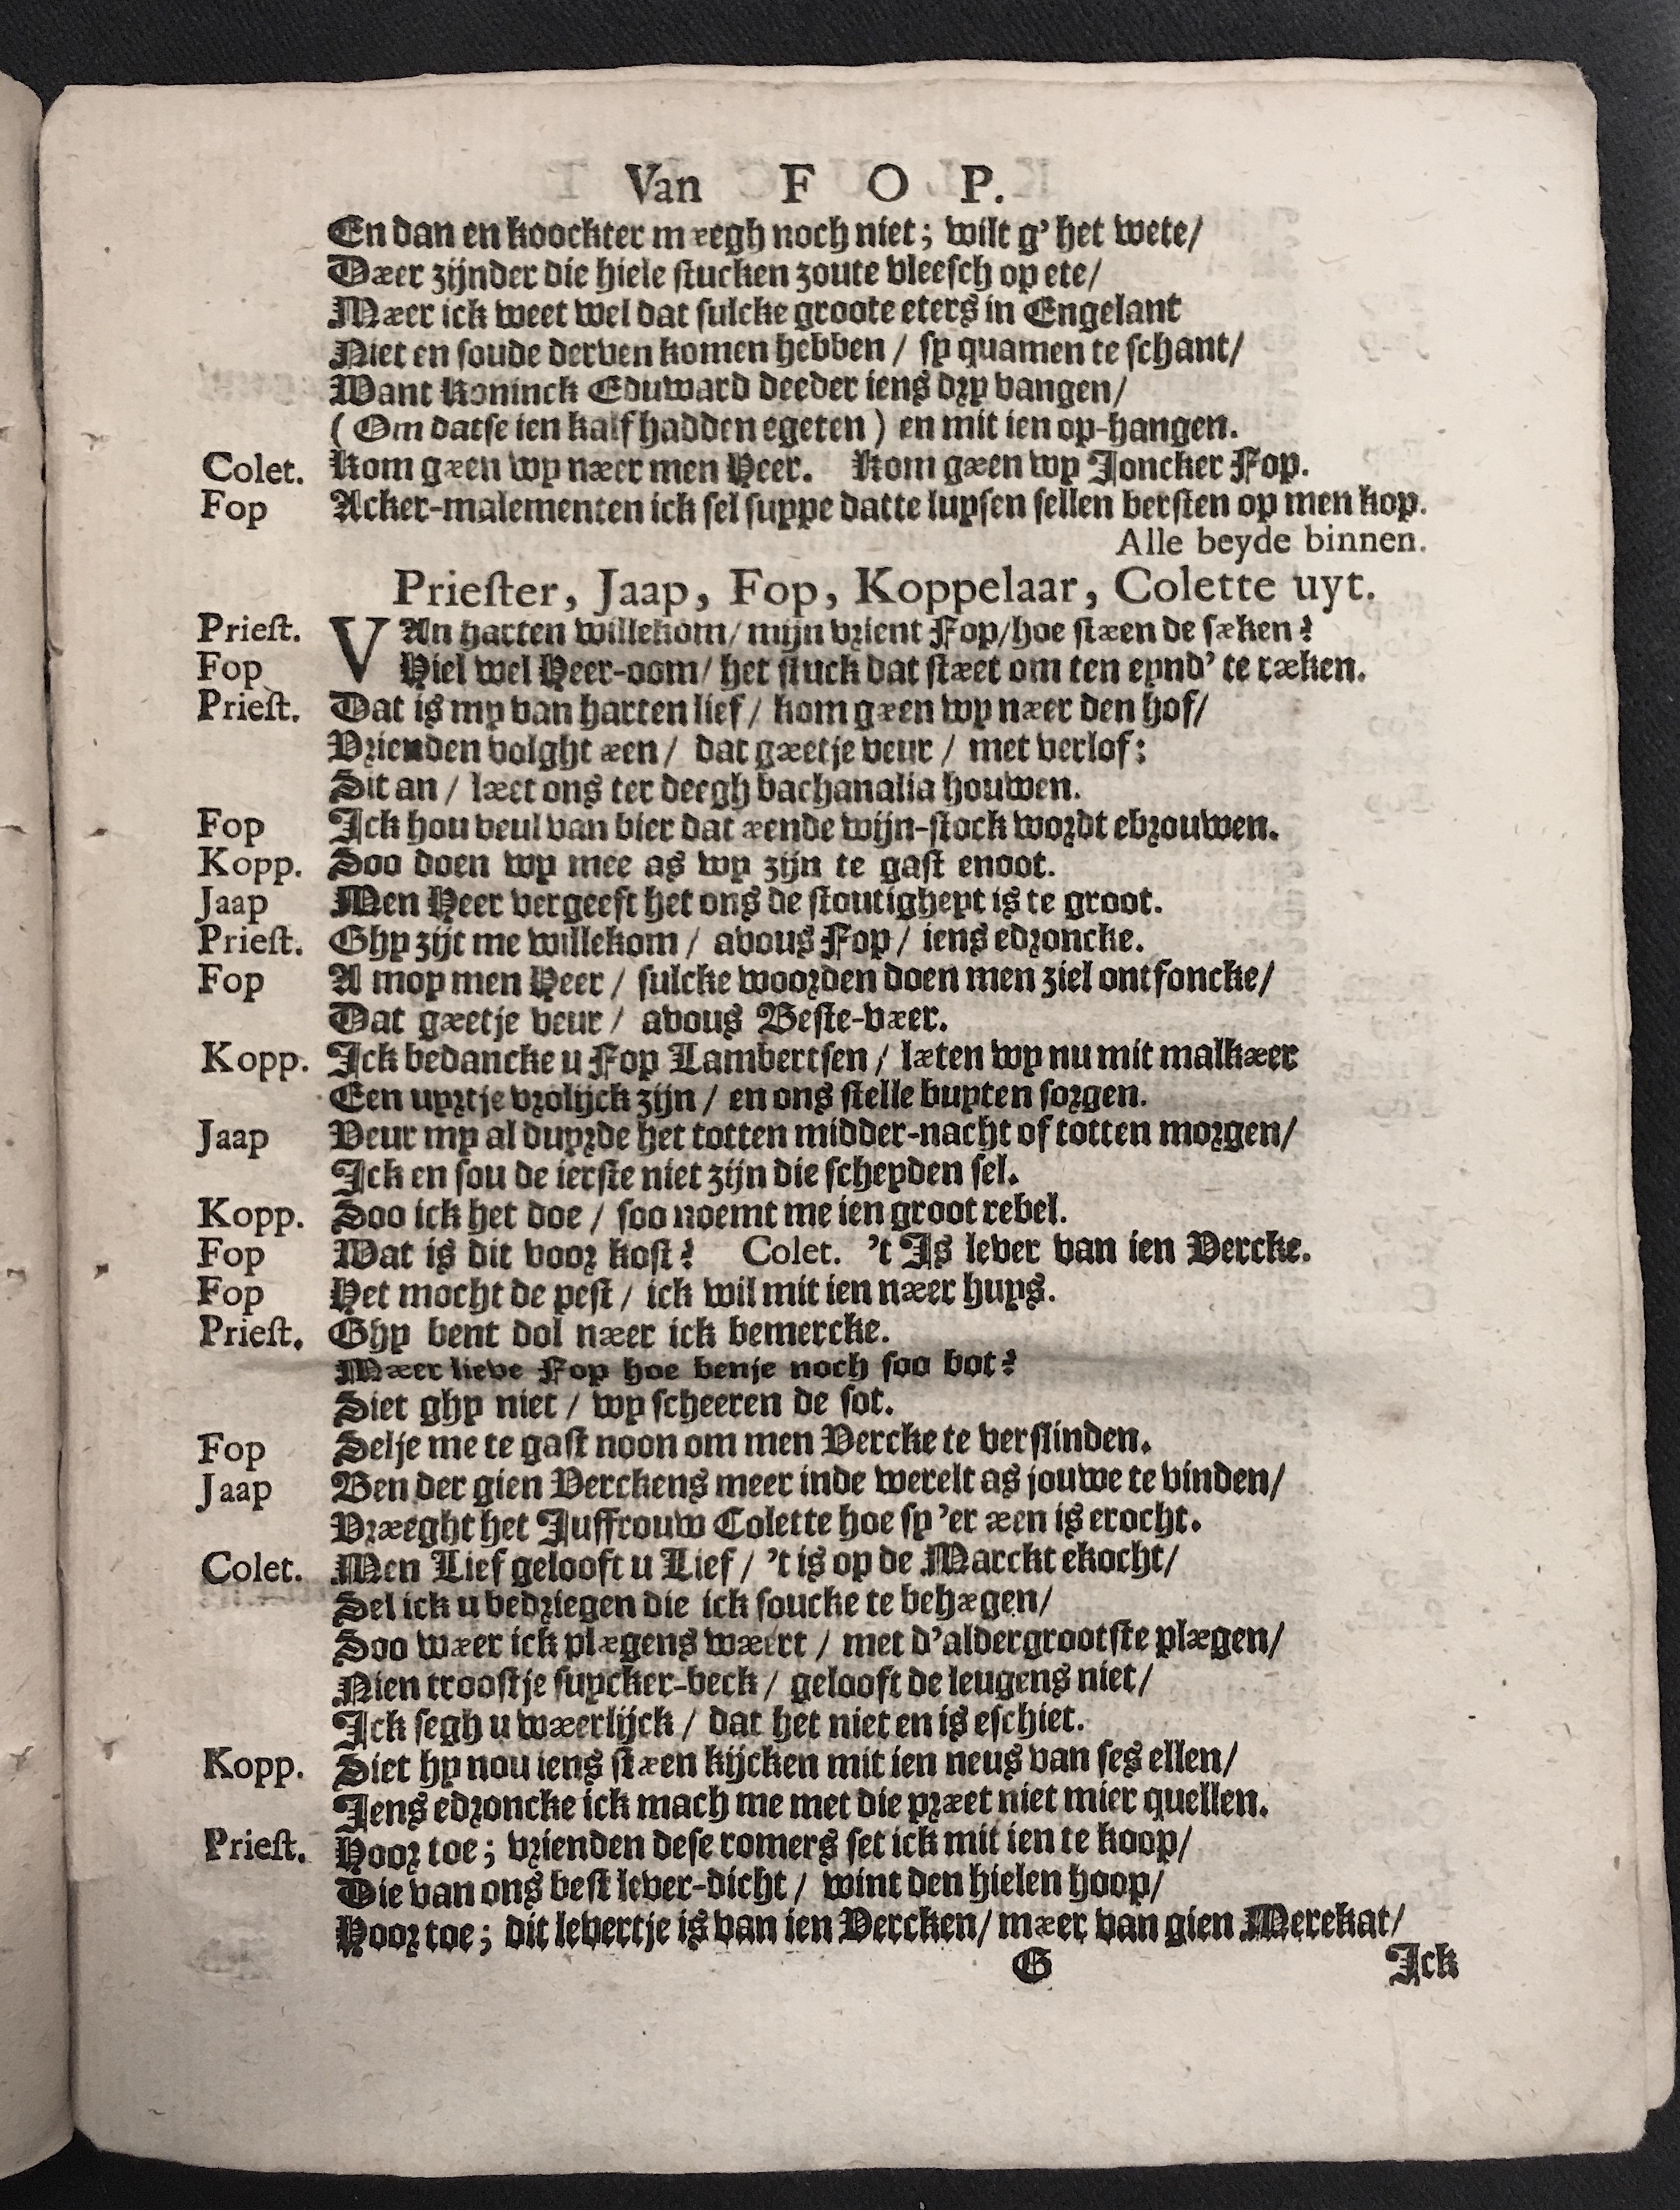 Van F O P.
En dan en koockter mæegh noch niet; wilt g' het wete/
Dæer zijnder die hiele stucken zoute vleesch op ete/
Mæer ick weet wel dat sulcke groote eters in Engelant
Niet en soude derven komen hebben / sy quamen te schant/
Want Koninck Eduward deeder iens dry vangen/
( Om datse ien kalf hadden egeten ) en mit ien op-hangen.
Colet. Kom gæen wy næer men Heer. Kom gæen wy Joncker Fop.
Fop Acker-malementen ick sel suype datte luysen sellen bersten op men kop.
Alle beyde binnen.
Priester, Jaap, Fop, Koppelaar, Colette uyt.
Priest. VAn harten willekom/ mijn vrient Fop/hoe stæen de sæken?
Fop Hiel wel Heer-oom/ het stuck dat stæet om ten eynd' te ræken.
Priest. Dat is my van harten lief / kom gæen wy næer den hof/
Vrienden volght æen / dat gæetje veur / met verlof;
Sit an / læet ons ter deegh bachanalia houwen.
Fop Ick hou veul van bier dat æende wijn-stock wordt ebrouwen.
Kopp. Soo doen wy mee as wy zijn te gast enoot.
Jaap Men Heer vergeeft het ons de stoutigheyt is te groot.
Priest. Ghy zijt me willekom / avous Fop / iens edroncke.
Fop A moy men Heer / sulcke woorden doen men ziel ontfoncke/
Dat gæetje veur / avous Beste-væer.
Kopp. Ick bedancke u Fop Lambertsen / læten wy nu mit malkæer
Een uyrtje vrolijck zijn / en ons stelle buyten sorgen.
Jaap Veur my al duyrde het totten midder-nacht of totten morgen/
Ick en sou de ierste niet zijn die scheyden sel.
Kopp. Soo ick het doe / soo noemt me ien groot rebel.
Fop Wat is dit voor kost? Colet. 't Is lever van ien Vercke.
Fop Het mocht de pest / ick wil mit ien næer huys.
Priest. Ghy bent dol næer ick bemercke.
Mæer lieve Fop hoe benje noch soo bot?
Siet ghy niet / wy scheeren de sot.
Fop Selje me te gast noon om men Vercke te verslinden.
Jaap Ben der gien Verckens meer inde werelt as jouwe te vinden/
Vræeght het Juffrouw Colette hoe sy 'er æen is erocht.
Colet. Men Lief gelooft u Lief / 't is op de Marckt ekocht/
Sel ick u bedriegen die ick soucke te behægen/
Soo wæer ick plægens wæert / met d'aldergrootste plægen/
Nien troostje suycker-beck / gelooft de leugens niet/
Ick segh u wæerlijck / dat het niet en is eschiet.
Kopp. Siet hy nou iens stæen kijcken mit ien neus van ses ellen/
Iens edroncke ick mach me met die præet niet mier quellen.
Priest. Hoor toe; vrienden dese romers set ick mit ien te koop/
Die van ons best lever-dicht / wint den hielen hoop/
Hoor toe; dit levertje is van ien Vercken/ mæer van gien Merekat/
G Ick